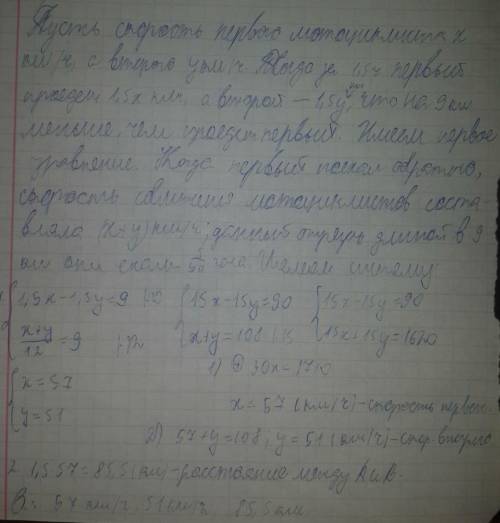 Пусть скорость первого мотоциклиста x
км/ч, а второго y км/ч. Тогда за 1,5ч первый
проедет 1,5x км, а второй – 1,5y км, что на 9 км
меньше, чем проедет первый. Имеем первое
уравнение. Когда первый поехал обратно,
скорость сближения мотоциклистов соста-
вляла (x+y) км/ч; данный отрезок длиной в 9
км они ехали часа. Имеем систему
1,5x-1,5y=9 |·10 15x-15y=90 15x-15y=90
x+y/12=9 |·12 x+y=108 |·15 15x+15y=1620
x=57 1) ⊕ 30x=1710
y=51 x=57 (км/ч)-скорость первого.
2) 57+y=108, y=51 (км/ч)-скор. второго
2. 1,5·57=85,5 (км)-расстояние между А и В.
57 км/ч, 51 км/ч, 85,5 км.